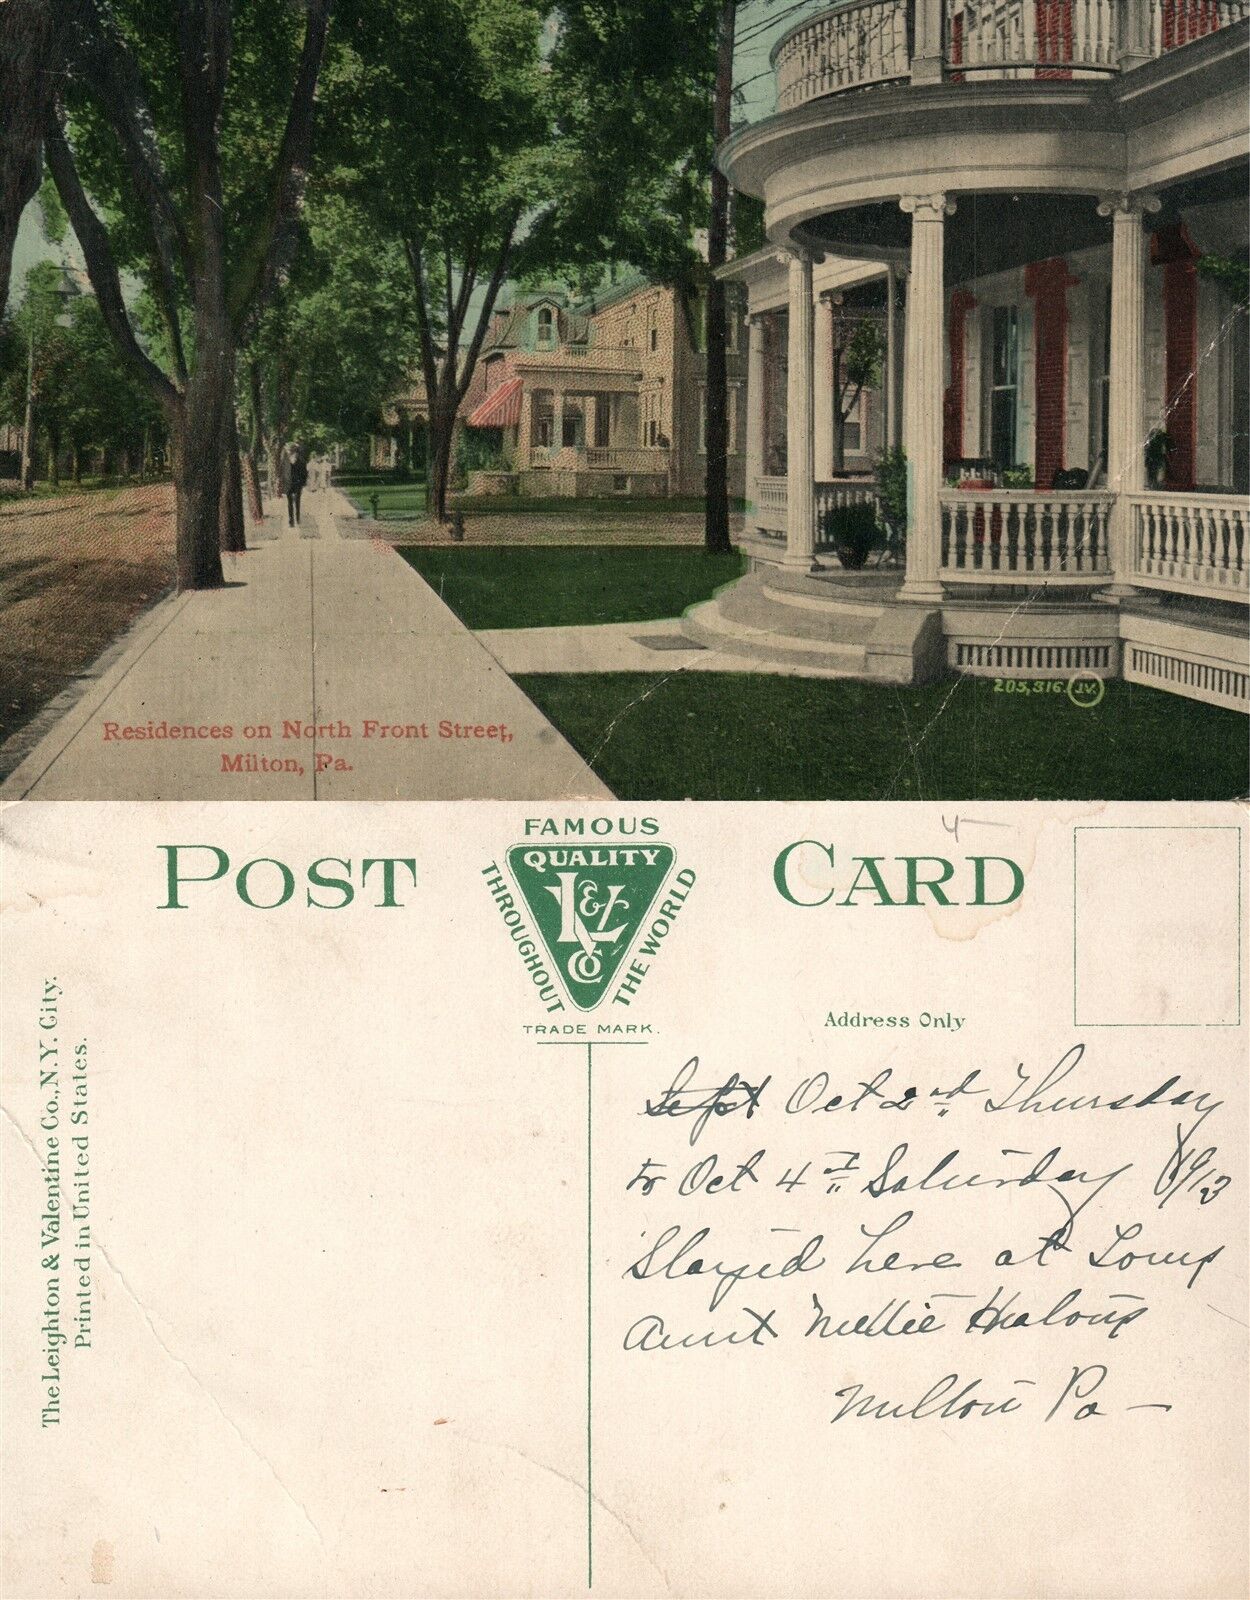 205,316. JV.
Residences on North Front Street,
Milton, Pa.
POST CARD
FAMOUS
QUALITY
THROUGHOUT
THE WORLD
L&V
CO
TRADE MARK.
4
Address Only
The Leighton & Valentine Co., N.Y. City.
Printed in United States.
Sept Oct 2nd Thursday
to Oct 4th Saturday 1913
Stayed here at
Aunt Nellie
Milton Pa —